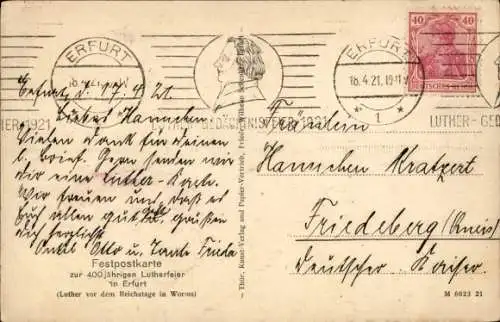 ERFURT
18.4.21. 17
ERFURT
18.4.21. 19
* 1 *
40 40
DEUTSCHES REICH
FEIER 1921
LUTHER-GEDÄCHTNISFEIER 1921
LUTHER-GED
Erfurt, d. 17.4.21
Liebes Hannchen
Vielen Dank für deinen
l. Brief. Gern senden wir
dir eine Luther-Karte.
Wir freuen uns, daß es
Euch allen gut geht. Es grüßen
dich herzlichst
Onkel Otto u. Tante Frieda
Festpostkarte
zur 400jährigen Lutherfeier
in Erfurt
(Luther vor dem Reichstage in Worms)
Thür. Kunst-Verlag und Papier-Vertrieb, Friedr. Wilhelm
Fräulein
Hannchen Kratzert
Friedeberg (Queis)
Deutscher Kaiser.
M 6623 21